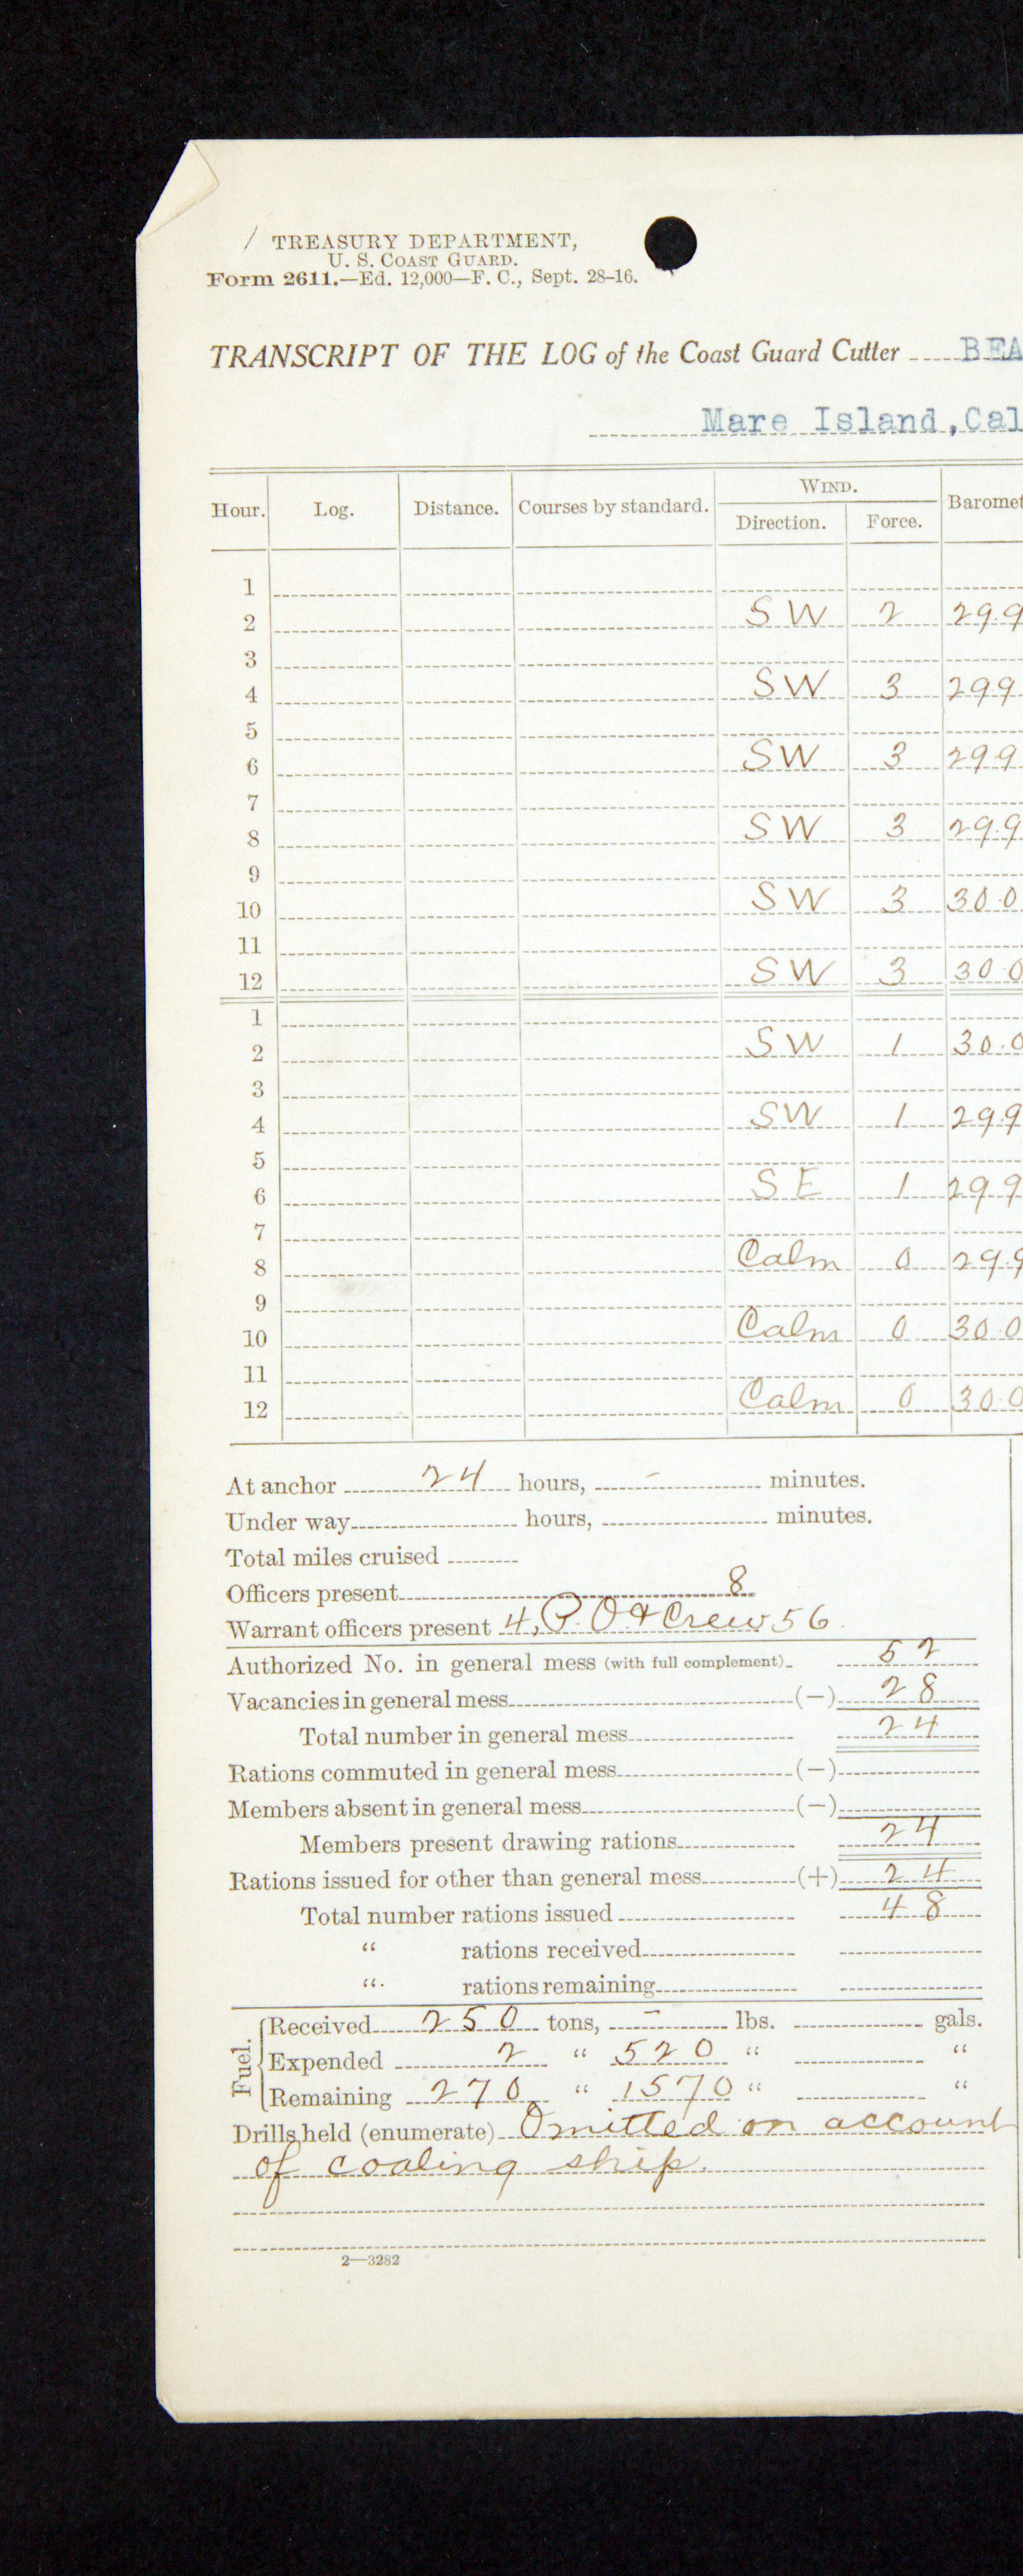 / TREASURY DEPARTMENT,
U. S. COAST GUARD.
Form 2611.—Ed. 12,000—F. C., Sept. 28-16.
TRANSCRIPT OF THE LOG of the Coast Guard Cutter BEA
Mare Island, Cal
WIND.
Hour. Log. Distance. Courses by standard. Direction. Force. Baromet
1
2 SW 2 29.9
3
4 SW 3 299
5
6 SW 3 299
7
8 SW 3 29.9
9
10 SW 3 30.0
11
12 SW 3 30.0
1
2 SW 1 30.0
3
4 SW 1 29.9
5
6 SE 1 29.9
7
8 Calm 0 29.9
9
10 Calm 0 30.0
11
12 Calm 0 30.0
At anchor 24 hours, – minutes.
Under way hours, minutes.
Total miles cruised
Officers present 8
Warrant officers present 4, P.O & Crew 56
Authorized No. in general mess (with full complement) 52
Vacancies in general mess (—) 28
Total number in general mess 24
Rations commuted in general mess (—)
Members absent in general mess (—)
Members present drawing rations 24
Rations issued for other than general mess (+) 24
Total number rations issued 48
“ rations received
“ rations remaining
Fuel.
Received 250 tons, – lbs. gals.
Expended 2 “ 520 “ “
Remaining 270 “ 1570 “ “
Drills held (enumerate) Omitted on account
of coaling ship.
2—3282